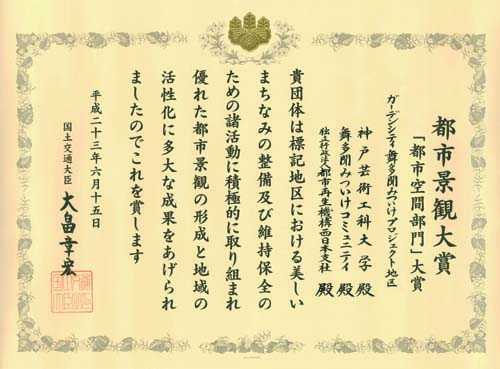 都市景観大賞
「都市空間部門」大賞
ガーデンシティ舞多聞みついけプロジェクト地区
神戸芸術工科大学 殿
舞多聞みついけコミュニティ 殿
独立行政法人都市再生機構西日本支社 殿
貴団体は標記地区における美しい
まちなみの整備及び維持保全の
ための諸活動に積極的に取り組まれ
優れた都市景観の形成と地域の
活性化に多大な成果をあげられ
ましたのでこれを賞します
平成二十三年六月十五日
国土交通大臣 大畠章宏